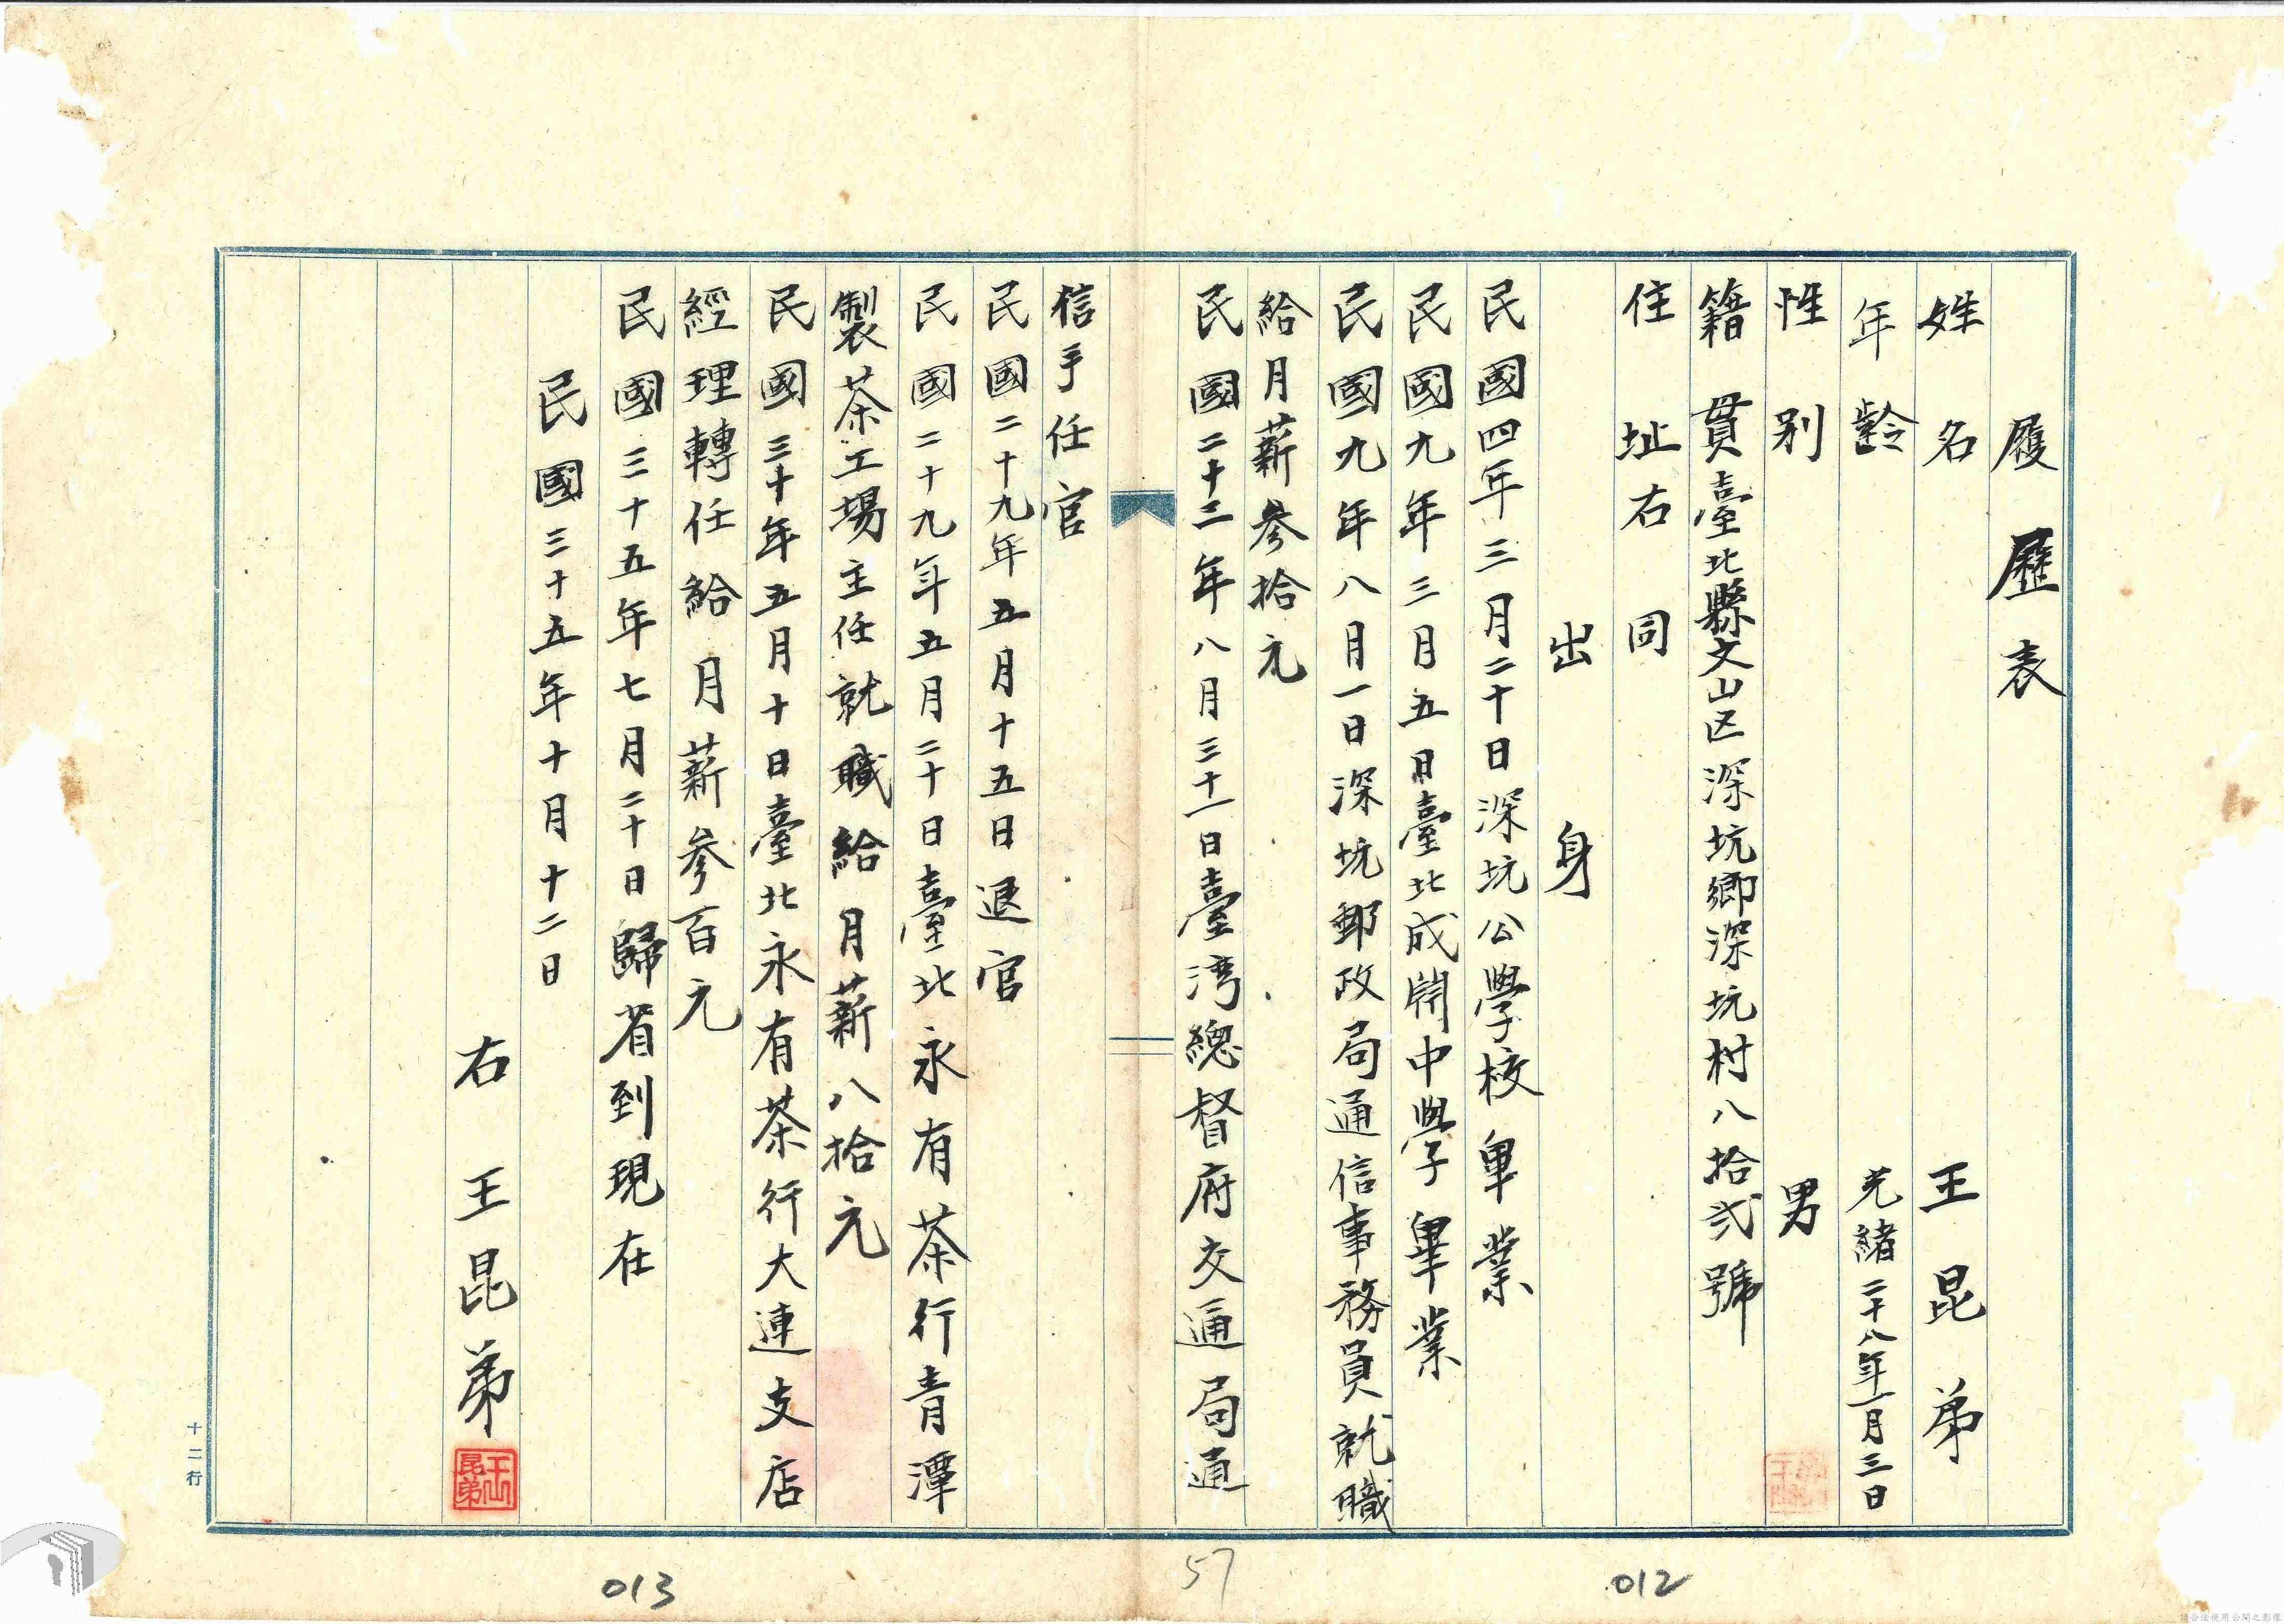 履歷表
姓名 王昆弟
年齡 光緒二十八年一月三日
性別 男
籍貫 臺北縣文山区深坑鄉深坑村八拾弍號
住址 右同
出身
民國四年三月二十日深坑公學校畢業
民國九年三月五日臺北成開中學畢業
民國九年八月一日深坑郵政局通信事務員就職
給月薪參拾元
民國二十三年八月三十一日臺湾總督府交通局通
信手任官
民國二十九年五月十五日退官
民國二十九年五月二十日臺北永有茶行青潭
製茶工場主任就職給月薪八拾元
民國三十年五月十日臺北永有茶行大連支店
經理轉任給月薪參百元
民國三十五年七月二十日歸省到現在
民國三十五年十月十二日
右 王昆弟
王昆弟
十二行
012
57
013
請合法使用公開之影像